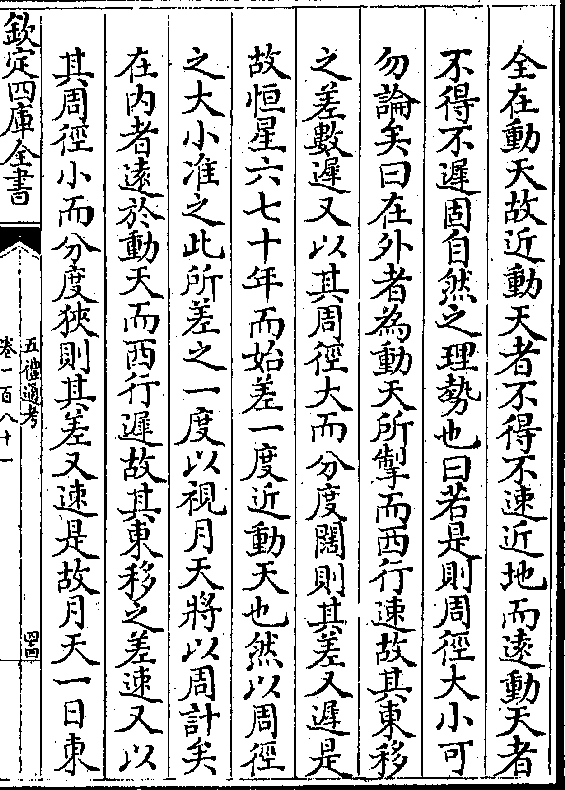 全在動天故近動天者不得不速近地而遠動天者
不得不遲固自然之理勢也曰若是則周徑大小可
勿論矣曰在外者為動天所掣而西行速故其東移
之差數遲又以其周徑大而分度闊則其差又遲是
故恒星六七十年而始差一度近動天也然以周徑
之大小准之此所差之一度以視月天將以周計矣
在内者遠於動天而西行遲故其東移之差速又以
其周徑小而分度狹則其差又速是故月天一日東
欽定四庫全書
五禮通考
卷一百八十一
四